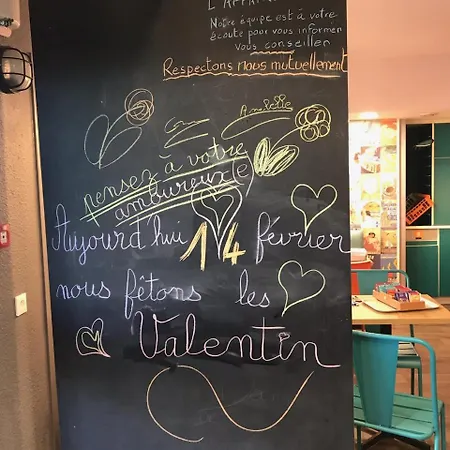 Notre équipe est à votre
écoute pour vous informer
vous conseiller
Respectons nous mutuellement
pensez à votre
amoureux(e)
Aujourd'hui 14 février
nous fêtons les
Valentin